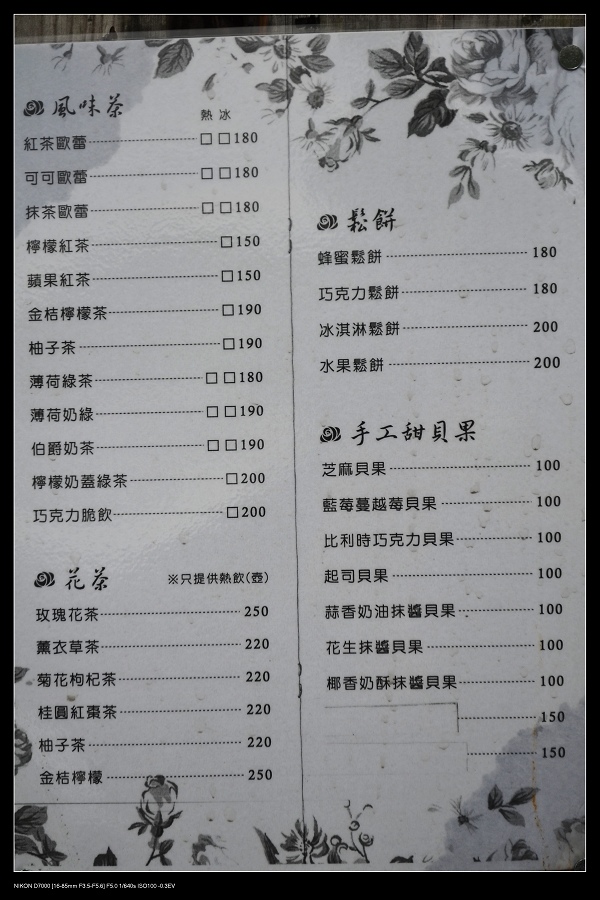 風味茶
熱 冰
紅茶歐蕾 □ □180
可可歐蕾 □ □180
抹茶歐蕾 □ □180
檸檬紅茶 □150
蘋果紅茶 □150
金桔檸檬茶 □190
柚子茶 □190
薄荷綠茶 □ □180
薄荷奶綠 □ □190
伯爵奶茶 □ □190
檸檬奶蓋綠茶 □200
巧克力脆飲 □200
花茶 ※只提供熱飲(壺)
玫瑰花茶 250
薰衣草茶 220
菊花枸杞茶 220
桂圓紅棗茶 220
柚子茶 220
金桔檸檬 250
鬆餅
蜂蜜鬆餅 180
巧克力鬆餅 180
冰淇淋鬆餅 200
水果鬆餅 200
手工甜貝果
芝麻貝果 100
藍莓蔓越莓貝果 100
比利時巧克力貝果 100
起司貝果 100
蒜香奶油抹醬貝果 100
花生抹醬貝果 100
椰香奶酥抹醬貝果 100
150
150
NIKON D7000 [16-85mm F3.5-F5.6] F5.0 1/640s ISO100 -0.3EV